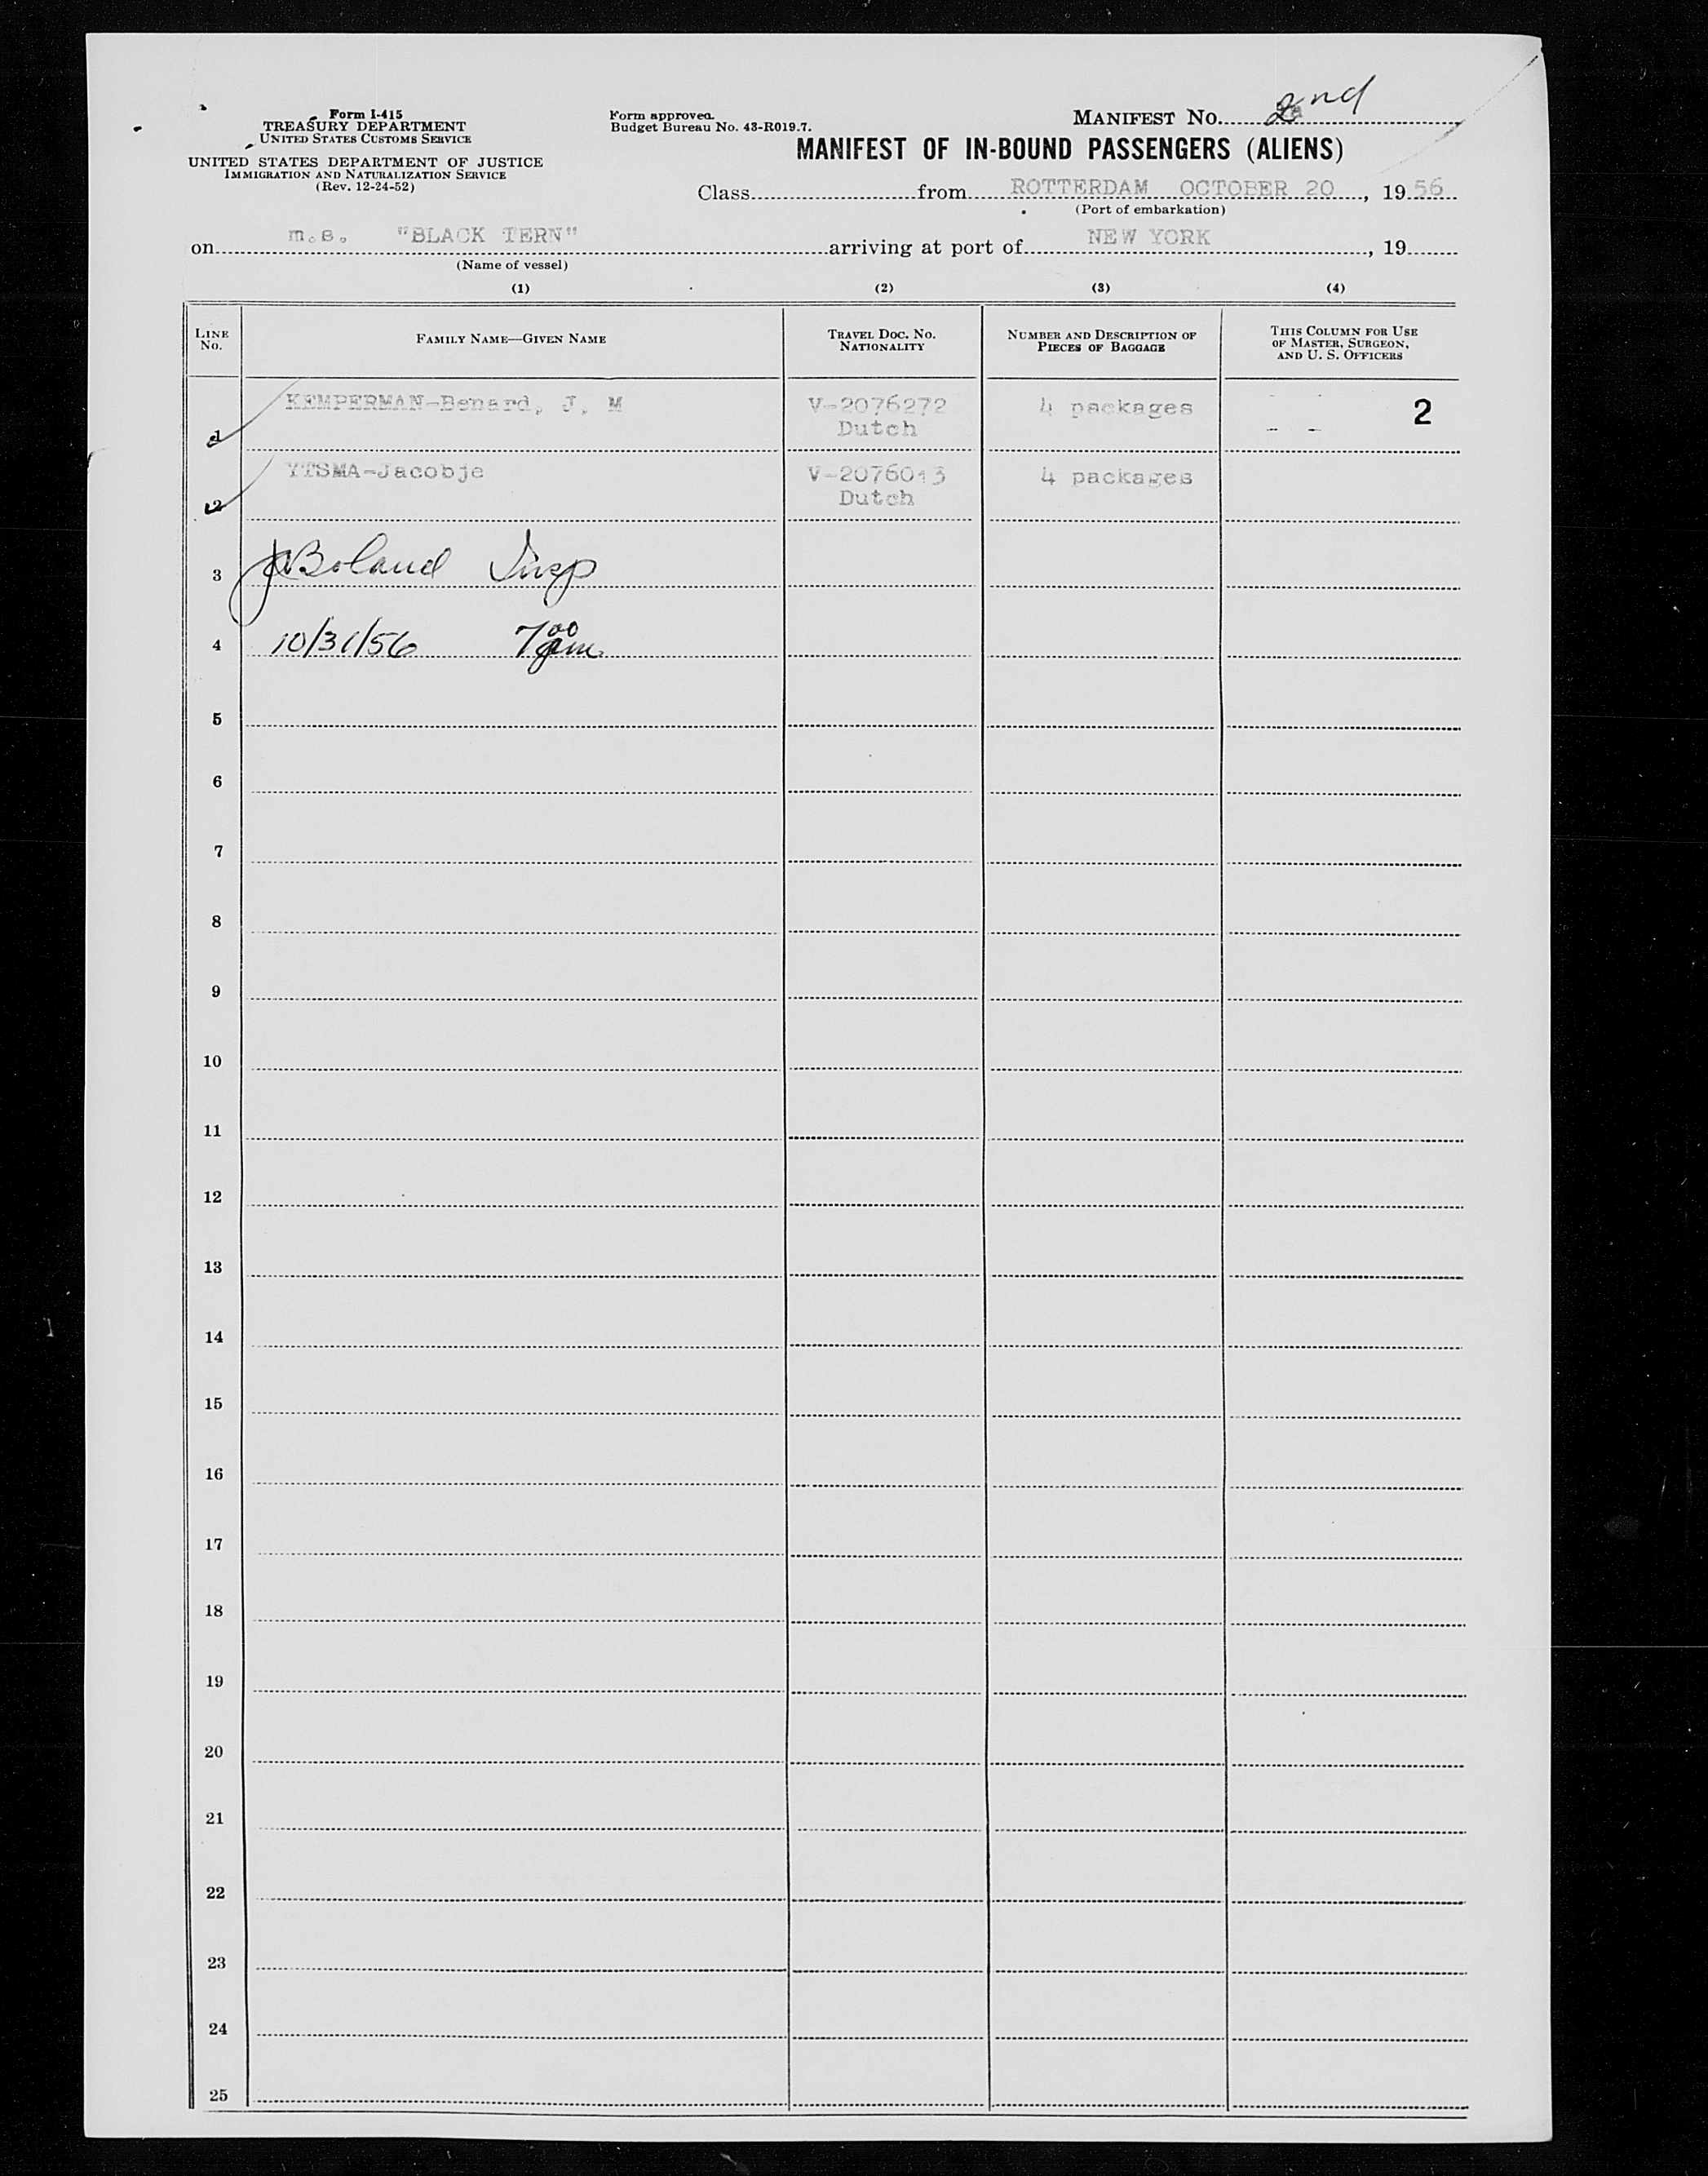 Form I-415
TREASURY DEPARTMENT
UNITED STATES CUSTOMS SERVICE
UNITED STATES DEPARTMENT OF JUSTICE
IMMIGRATION AND NATURALIZATION SERVICE
(Rev. 12-24-52)
Form approved.
Budget Bureau No. 43-R019.7.
MANIFEST No. 2nd
MANIFEST OF IN-BOUND PASSENGERS (ALIENS)
Class from ROTTERDAM OCTOBER 20, 1956
(Port of embarkation)
on m.s. "BLACK TERN" arriving at port of NEW YORK, 19
(Name of vessel)
(1) (2) (3) (4)
LINE No. FAMILY NAME—GIVEN NAME TRAVEL DOC. NO. NATIONALITY NUMBER AND DESCRIPTION OF PIECES OF BAGGAGE THIS COLUMN FOR USE OF MASTER, SURGEON, AND U. S. OFFICERS
1 KEMPERMAN-Benard, J. M V-2076272 Dutch 4 packages 2
2 YTSMA-Jacobje V-2076013 Dutch 4 packages
3 Boland Insp
4 10/31/56 7 00
5
6
7
8
9
10
11
12
13
14
15
16
17
18
19
20
21
22
23
24
25